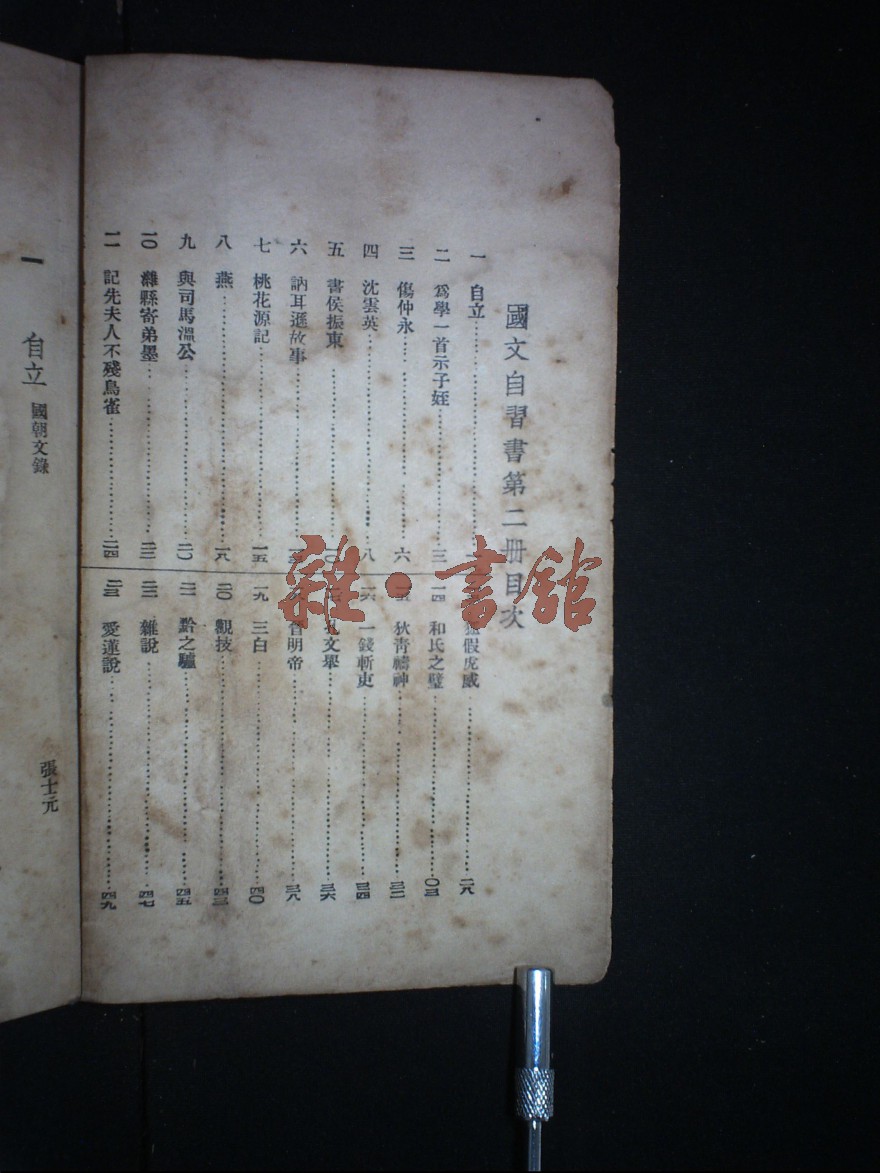 國文自習書第二冊目次
一 自立……
二 爲學一首示子姪……三
三 傷仲永……六
四 沈雲英……八
五 書侯振東……一〇
六 訥耳遜故事……
七 桃花源記……一五
八 燕……一八
九 與司馬溫公……二〇
一〇 濰縣寄弟墨……二二
一一 記先夫人不殘鳥雀……二四
假虎威……二八
一四 和氏之璧……三〇
一五 狄青禱神……三二
一六 一錢斬吏……三四
文舉……三六
晉明帝……三八
一九 三白……四〇
二〇 觀技……四三
二一 黔之驢……四五
二二 雜說……四七
二三 愛蓮說……四九
一 自立 國朝文錄 張士元
雜·書館